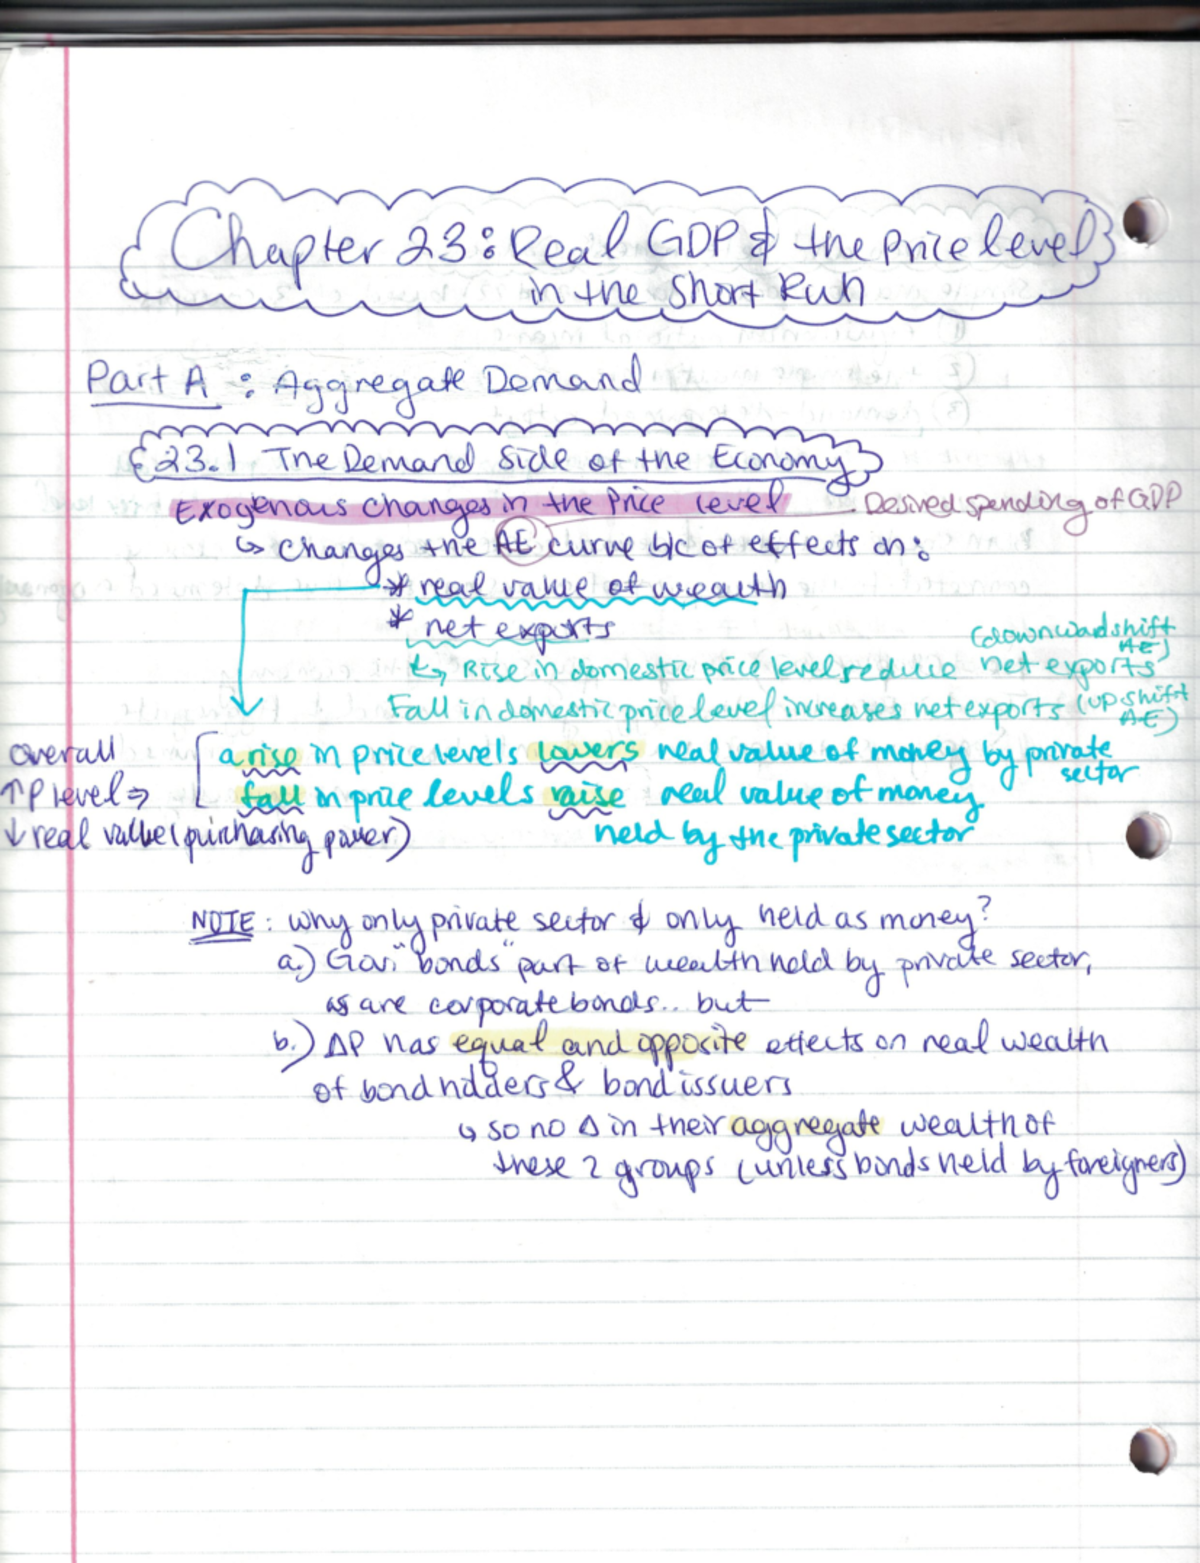 Chapter 23: Real GDP & the Price level
in the Short Run
Part A : Aggregate Demand
23.1 The Demand Side of the Economy
Exogenous changes in the Price level
Desired spending of GDP
↳ changes the AE curve b/c of effects on:
* real value of wealth
* net exports
(downward shift
AE)
↳ Rise in domestic price level reduce net exports
Fall in domestic price level increases net exports (up shift
AE)
overall
↑P level ⇒
↓ real value (purchasing power)
a rise in price levels lowers real value of money by private
sector
fall in price levels raise real value of money
held by the private sector
NOTE: Why only private sector & only held as money?
a.) Gov. "bonds" part of wealth held by private sector,
as are corporate bonds... but
b.) ΔP has equal and opposite effects on real wealth
of bondholders & bond issuers
↳ so no Δ in their aggregate wealth of
these 2 groups (unless bonds held by foreigners)